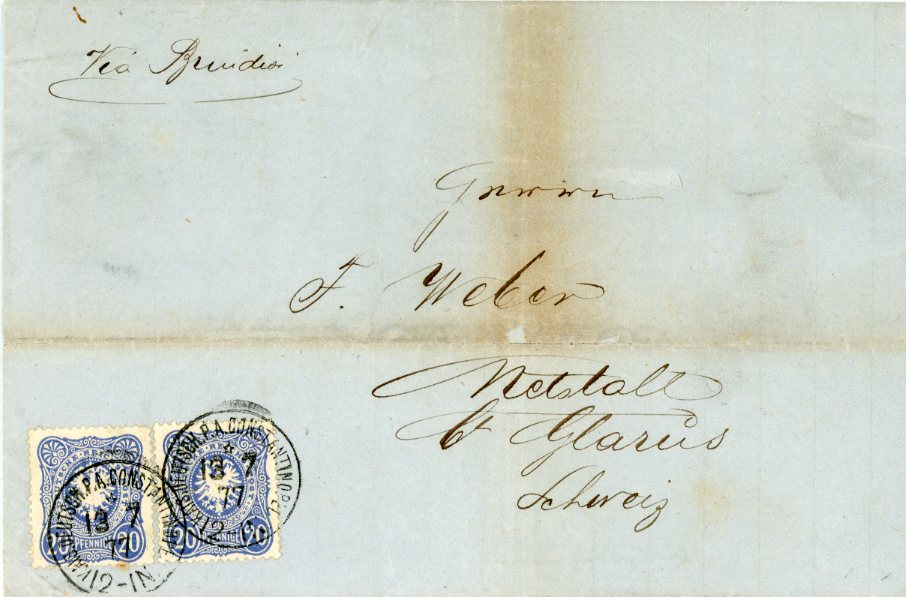 Via Brindisi
Herrn
F. Weber
Netstall
Ct Glarus
Schweiz
KAIS. DEUTSCH. P.A. CONSTANTINOPEL
13 7
77
KAIS. DEUTSCH. P.A. CONSTANTINOPEL
13 7
77
12-1N
20 PFENNIGE 20
20 PFENNIGE 20